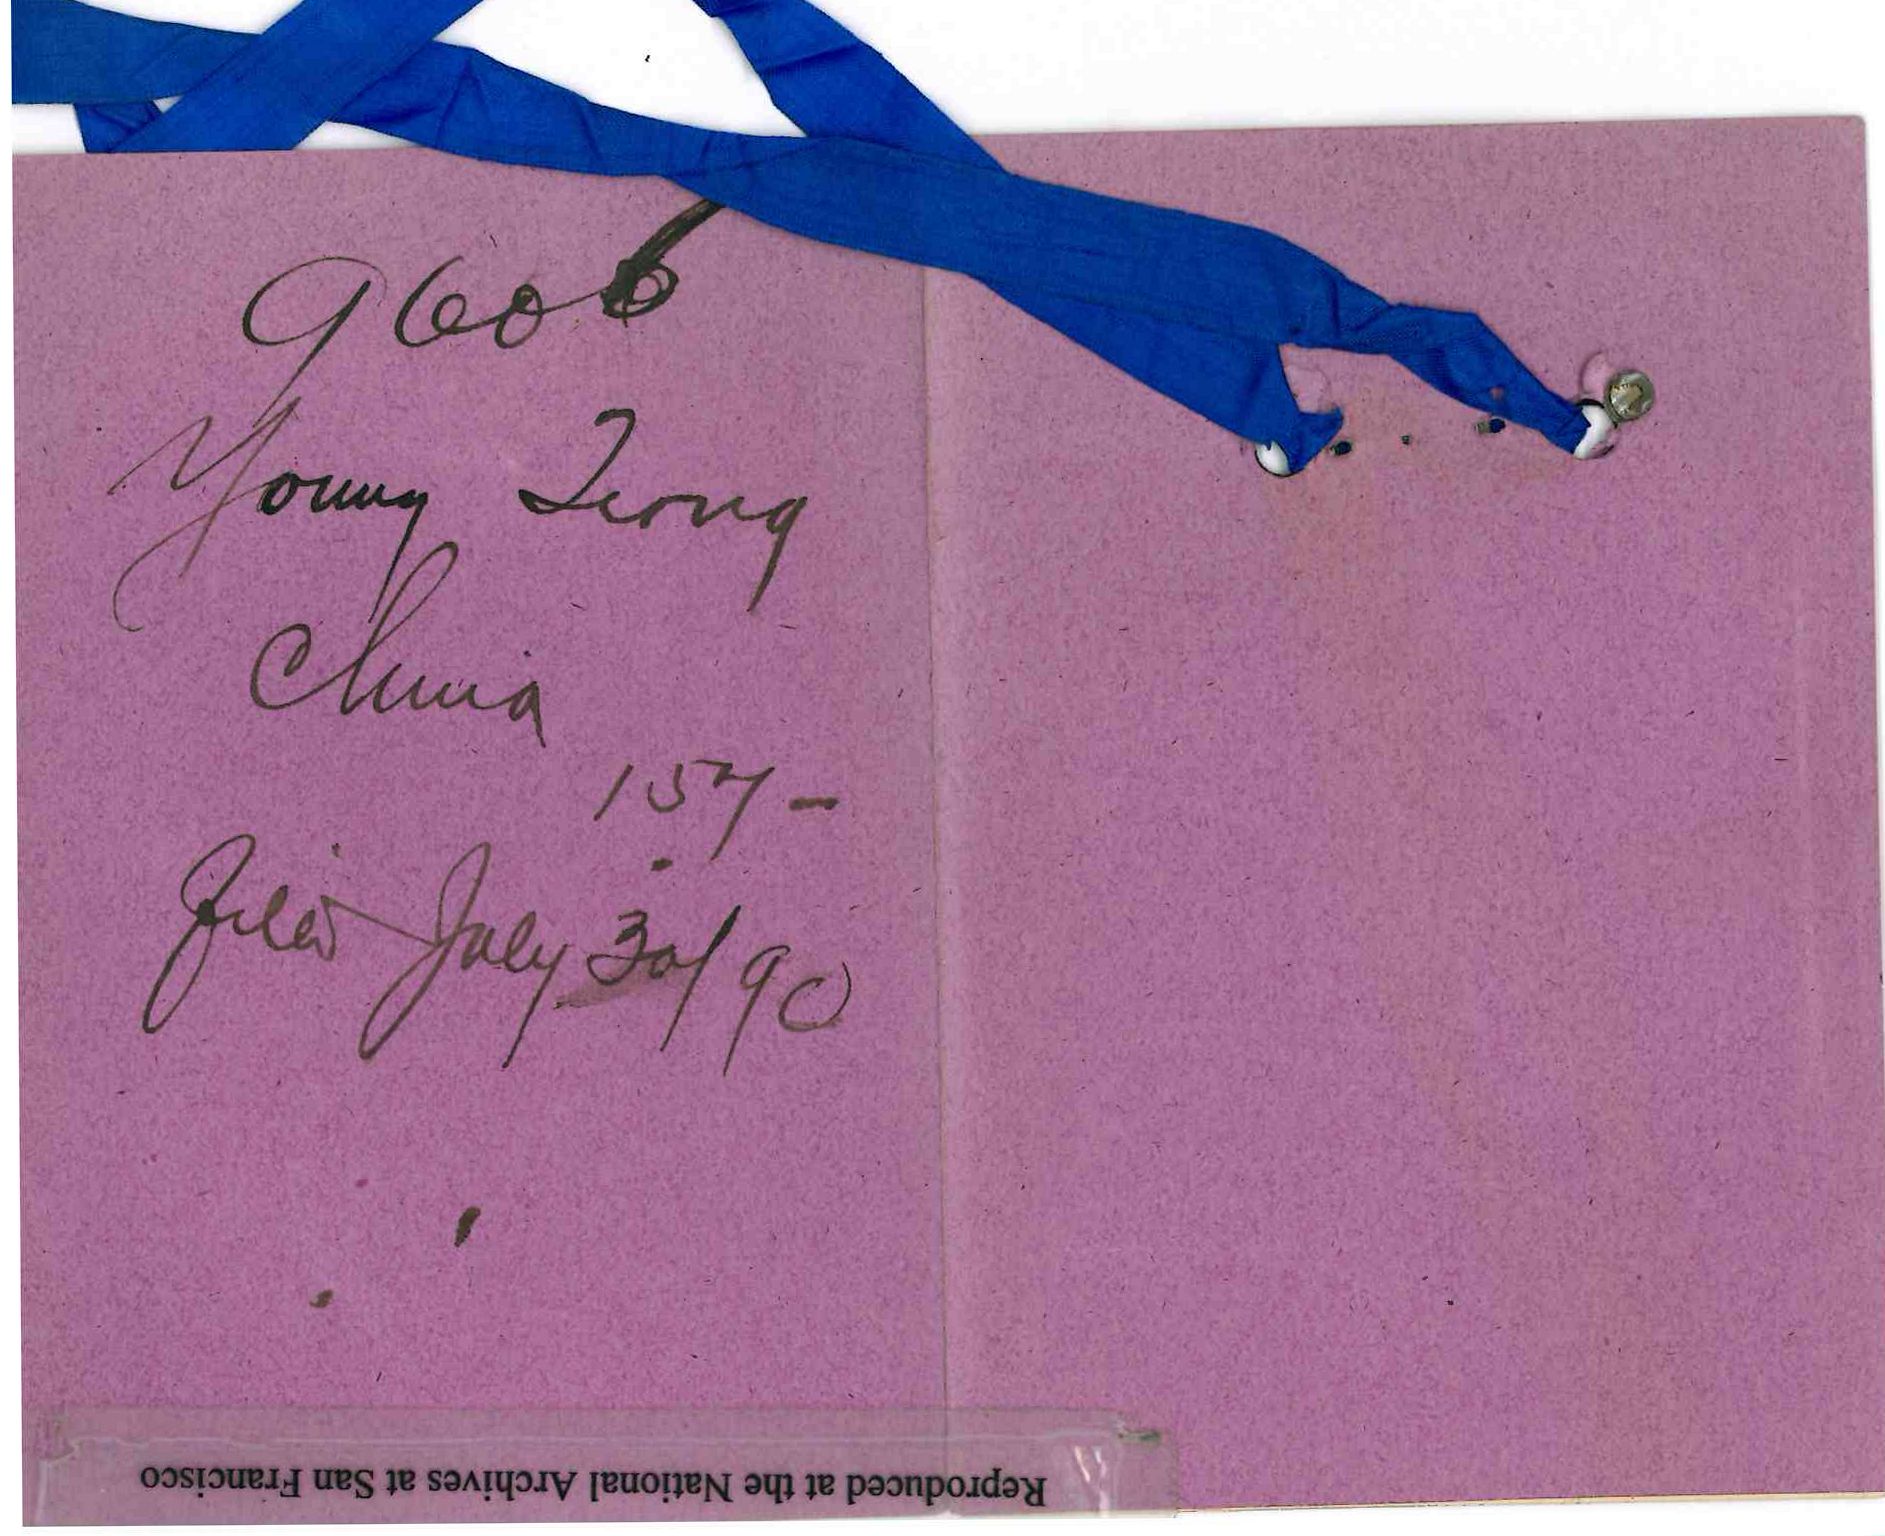 9606
Young Leong
China
157-
Filed July 30/90
Reproduced at the National Archives at San Francisco